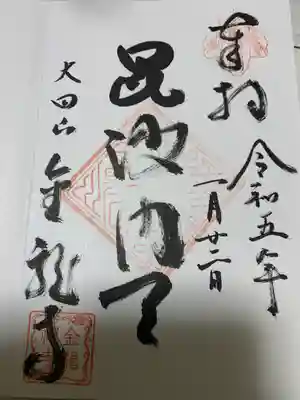 奉拝
令和五年
一月廿二日
毘沙門天
大田山
金龍寺